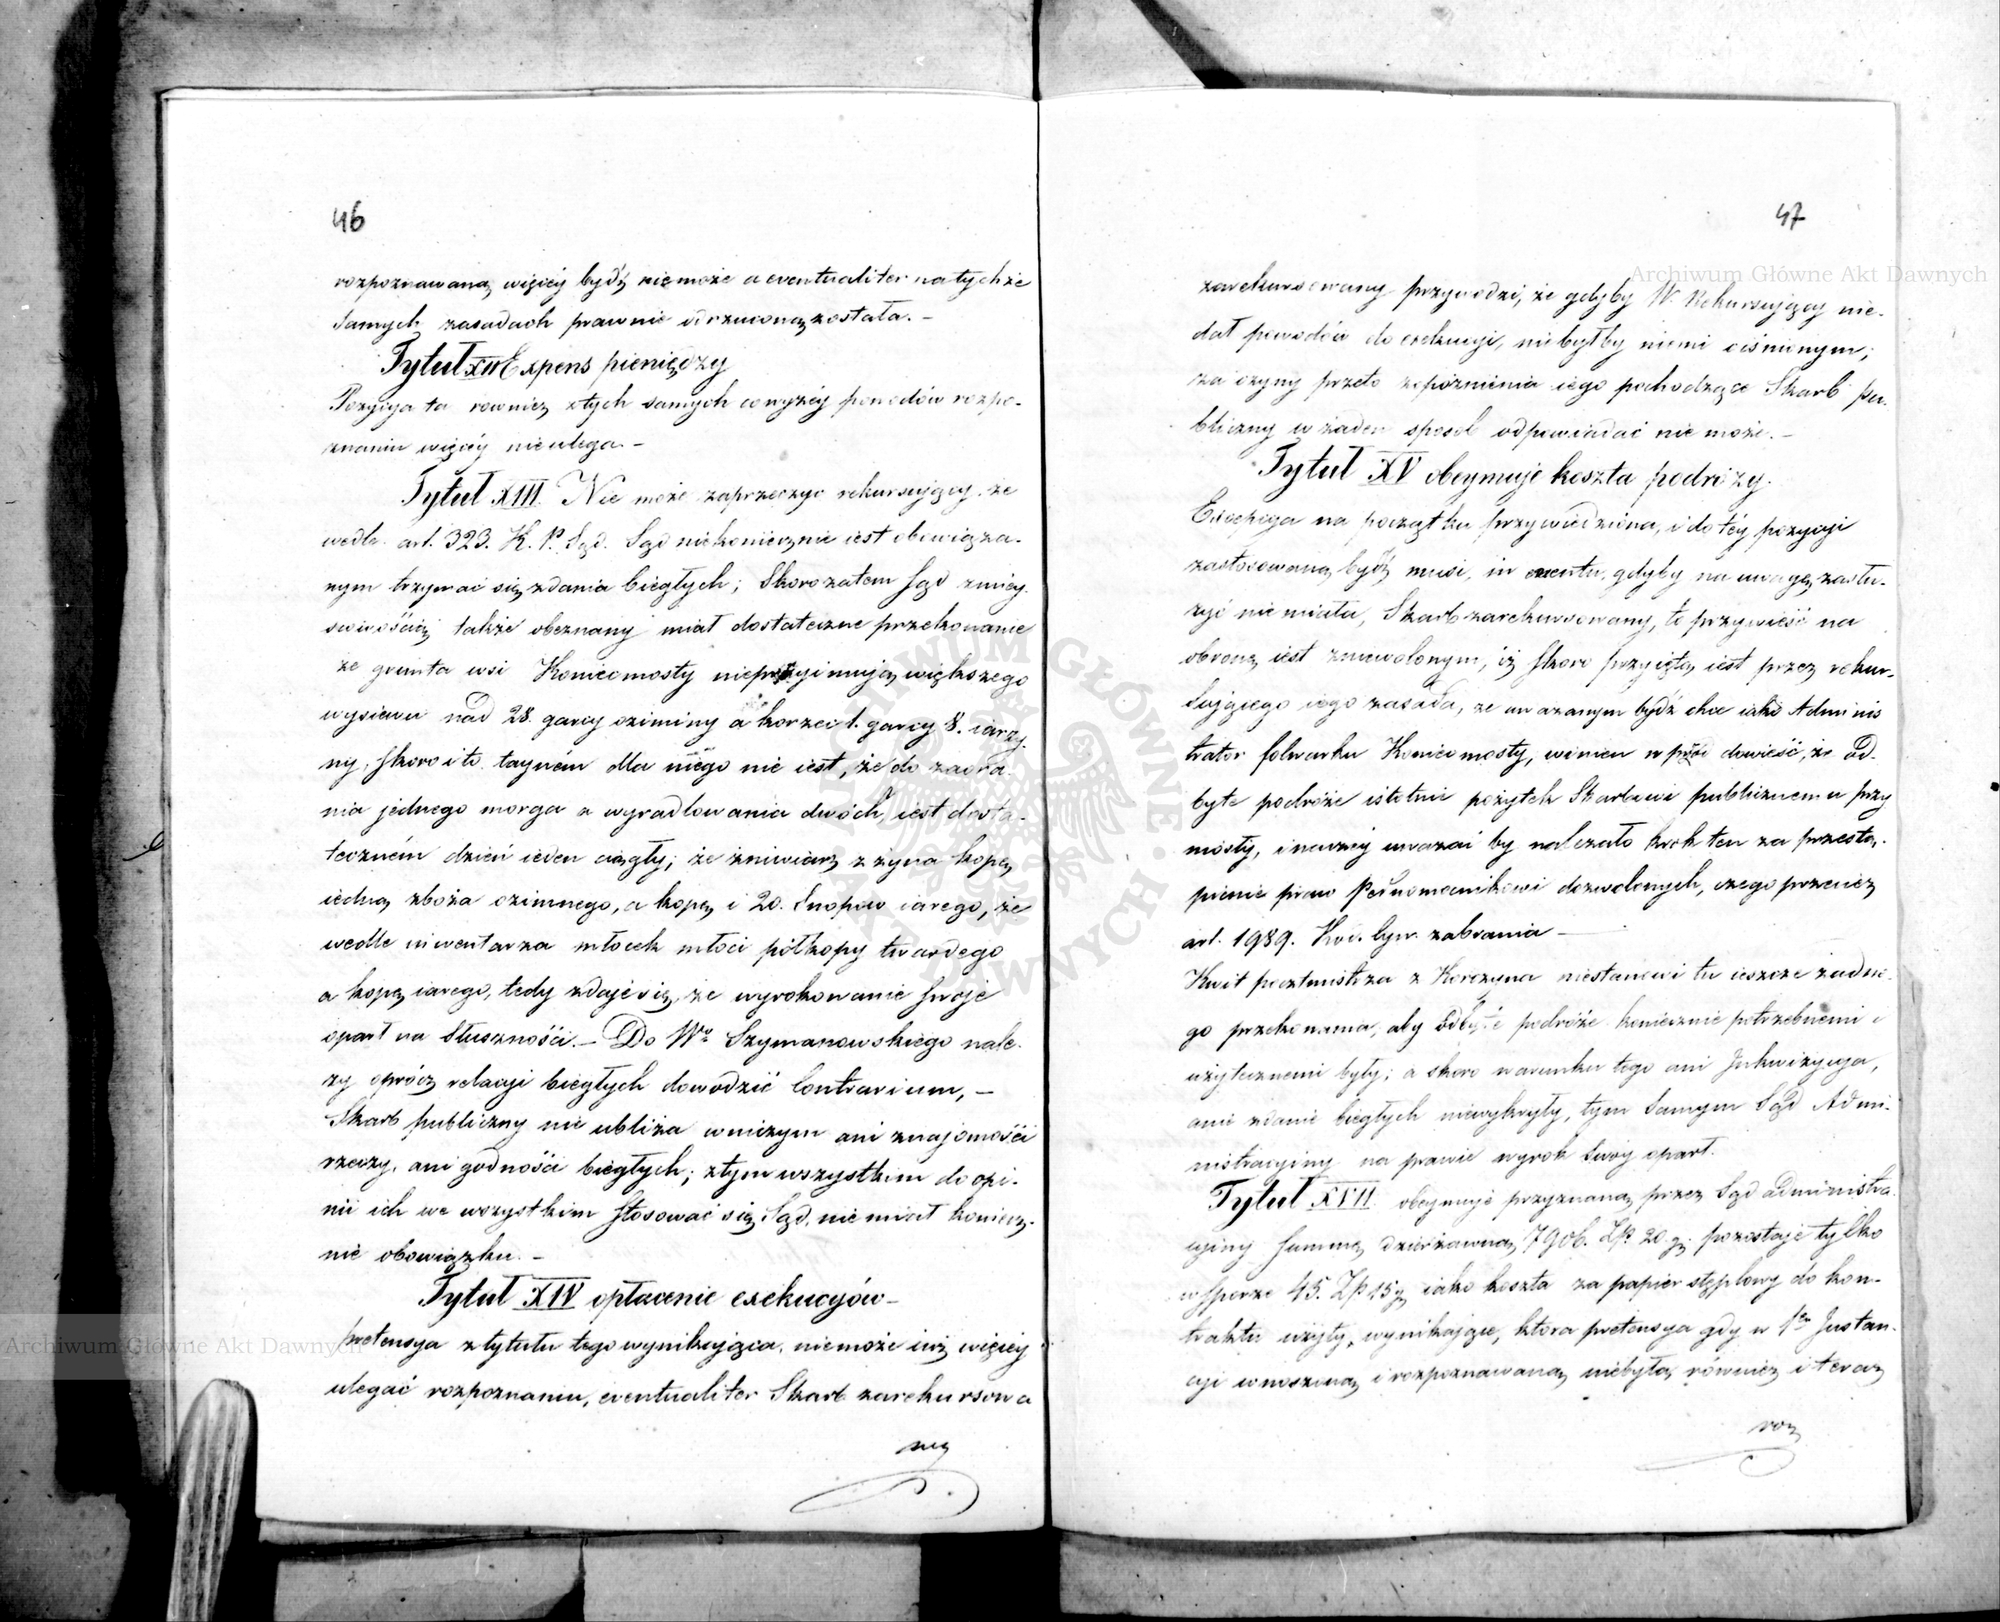 46
rozpoznawaną więcéy bydź niemoże a eventualiter na tychże
samych zasadach prawnie odrzuconą została. –
Tytuł XII Expens pieniędzy
Pozycya ta rownież z tych samych co wyżéy powodów rozpo-
znaniu więcéy nieulega. –
Tytuł XIII. Nie może zaprzeczyc rekursujący. że
wedle art. 323. K. P. Sąd. Sąd niekoniecznie iest obowiąza-
nym trzymać się zdania biegłych; Skoro zatem Sąd z miey-
scowością także obeznany miał dostateczne przekonanie
że grunta wsi Koniecmosty nieprzyimuią większego
wysiewu nad 28. garcy oziminy a korzec 1. garcy 8. iarzy-
ny, skoro i to tayném dla niego nie iest, że do zaora-
nia jednego morga a wyradlowania dwóch, iest dosta-
teczném dzień ieden ciągły; że żniwiarz z żyna kopę
iedną zboża ozimnego, a kopę i 20. Snopow iarego, że
wedle inwentarza młocek młóci półkopy twardego
a kopę iarego, tedy zdaje się, że wyrokowanie swoje
oparł na słuszności. – Do Wgo Szymanowskiego nale-
ży oprócz relacyi biegłych dowodzić Contrarium, –
Skarb publiczny nie ubliża w niczym ani znajomości
rzeczy, ani godności biegłych; z tym wszystkim do opi-
nii ich we wszystkim stosować się Sąd, nie miał koniecz-
nie obowiązku. –
Tytuł XIV opłacenie exekucyów –
pretensya z tytułu tego wynikająca, niemoże iuż więcéy
ulegać rozpoznaniu, eventualiter Skarb zarekursowa
ny
47
zarekursowany przywodzi, że gdyby W. Rekursujący nie-
dał powodów do exekucyi, niebyłby niemi ciśnionym;
za czyny przeto z opóznienia iego pochodzące Skarb pu-
bliczny w żaden sposob odpowiadać nie może. –
Tytuł XV obeymuje koszta podróży.
Excepcya na początku przywiedziona, i do téy pozycyi
zastosowaną bydź musi, in eventu, gdyby na uwagę zasłu-
żyć nie miała, Skarb zarekursowany, to przywieść na
obronę iest zniewolonym, iż skoro przyięta iest przez rekur-
sującego iego zasada, że uważanym bydź chce iako Adminis
trator folwarku Koniecmosty, winien wprzód dowieść, że od-
byte podróże istotnie pożytek Skarbowi publicznemu przy
niosły, inaczéy uważać by należało krok ten za przestą-
pienie praw Pełnomocnikowi dozwolonych, czego przecież
art. 1989. Kod. Cyw. zabrania –
Kwit pocztmistrza z Korczyna niestanowi tu ieszcze żadne-
go przekonania, aby odbyte podróże koniecznie potrzebnemi i
użytecznemi były; a skoro warunku tego ani Inkwizycya,
ani zdanie biegłych niewykryły, tym samym Sąd Admi-
nistracyiny na prawie wyrok swoy oparł.
Tytuł XVII obeymuje przyznaną przez Sąd administra-
cyiny Summę dzierżawną 7906. Złp. 20. gr. pozostaje tylko
w sporze 45. Złp 15 g iako koszta za papier stęplowy do kon-
traktu użyty, wynikające, która pretensya gdy w 1éy Instan-
cyi wnoszoną i rozpoznawaną niebyła, również i teraz
roz
Archiwum Główne Akt Dawnych
Archiwum Główne Akt Dawnych
ARCHIWUM GŁÓWNE AKT DAWNYCH